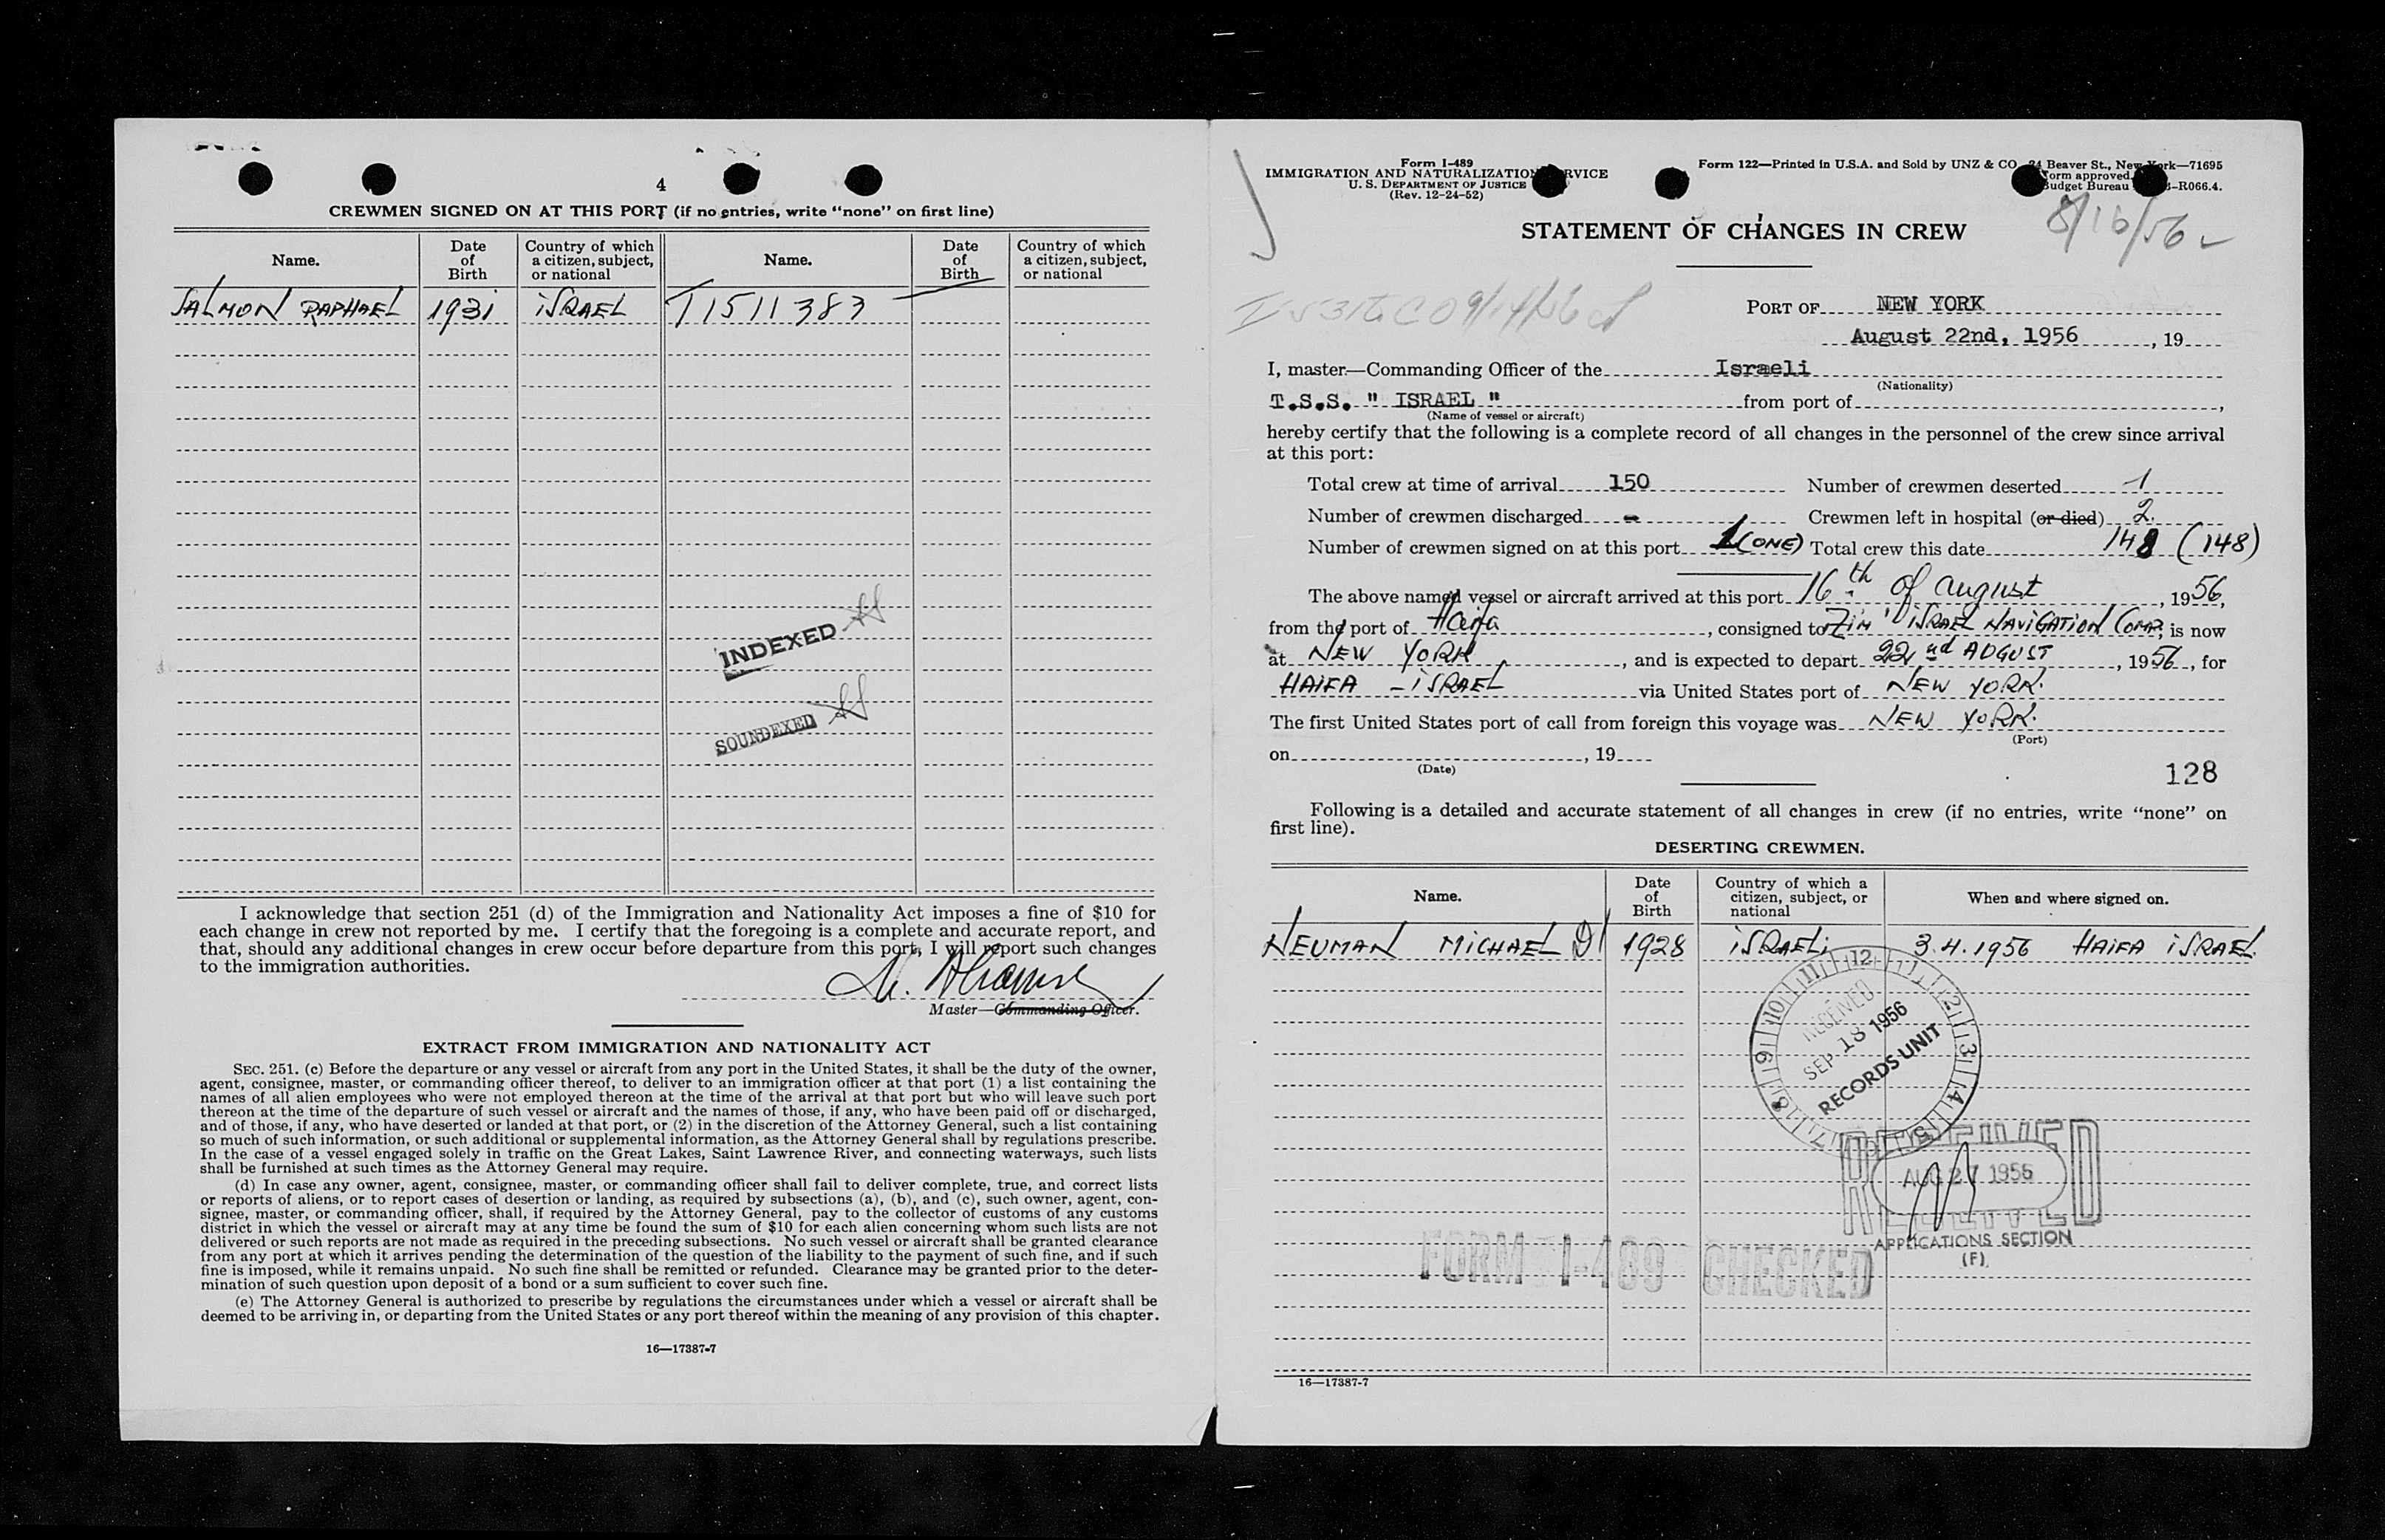 4
CREWMEN SIGNED ON AT THIS PORT (if no entries, write “none” on first line)
Name. Date of Birth Country of which a citizen, subject, or national Name. Date of Birth Country of which a citizen, subject, or national
SALMON RAPHAEL 1931 ISRAEL T1511383
INDEXED
SOUNDEXED
I acknowledge that section 251 (d) of the Immigration and Nationality Act imposes a fine of $10 for
each change in crew not reported by me. I certify that the foregoing is a complete and accurate report, and
that, should any additional changes in crew occur before departure from this port, I will report such changes
to the immigration authorities.
Master—Commanding Officer.
EXTRACT FROM IMMIGRATION AND NATIONALITY ACT
SEC. 251. (c) Before the departure or any vessel or aircraft from any port in the United States, it shall be the duty of the owner,
agent, consignee, master, or commanding officer thereof, to deliver to an immigration officer at that port (1) a list containing the
names of all alien employees who were not employed thereon at the time of the arrival at that port but who will leave such port
thereon at the time of the departure of such vessel or aircraft and the names of those, if any, who have been paid off or discharged,
and of those, if any, who have deserted or landed at that port, or (2) in the discretion of the Attorney General, such a list containing
so much of such information, or such additional or supplemental information, as the Attorney General shall by regulations prescribe.
In the case of a vessel engaged solely in traffic on the Great Lakes, Saint Lawrence River, and connecting waterways, such lists
shall be furnished at such times as the Attorney General may require.
(d) In case any owner, agent, consignee, master, or commanding officer shall fail to deliver complete, true, and correct lists
or reports of aliens, or to report cases of desertion or landing, as required by subsections (a), (b), and (c), such owner, agent, con-
signee, master, or commanding officer, shall, if required by the Attorney General, pay to the collector of customs of any customs
district in which the vessel or aircraft may at any time be found the sum of $10 for each alien concerning whom such lists are not
delivered or such reports are not made as required in the preceding subsections. No such vessel or aircraft shall be granted clearance
from any port at which it arrives pending the determination of the question of the liability to the payment of such fine, and if such
fine is imposed, while it remains unpaid. No such fine shall be remitted or refunded. Clearance may be granted prior to the deter-
mination of such question upon deposit of a bond or a sum sufficient to cover such fine.
(e) The Attorney General is authorized to prescribe by regulations the circumstances under which a vessel or aircraft shall be
deemed to be arriving in, or departing from the United States or any port thereof within the meaning of any provision of this chapter.
16—17387-7
Form I-489
IMMIGRATION AND NATURALIZATION RVICE
U. S. DEPARTMENT OF JUSTICE
(Rev. 12-24-52)
Form 122—Printed in U.S.A. and Sold by UNZ & CO 24 Beaver St., New York—71695
Form approved.
Budget Bureau -R066.4.
8/16/56
STATEMENT OF CHANGES IN CREW
PORT OF NEW YORK
August 22nd, 1956, 19
I, master—Commanding Officer of the Israeli
(Nationality)
T.S.S. " ISRAEL " from port of ,
(Name of vessel or aircraft)
hereby certify that the following is a complete record of all changes in the personnel of the crew since arrival
at this port:
Total crew at time of arrival 150 Number of crewmen deserted 1
Number of crewmen discharged - Crewmen left in hospital (or died) 2.
Number of crewmen signed on at this port 1 (ONE) Total crew this date 148 (148)
The above named vessel or aircraft arrived at this port 16th of august, 1956,
from the port of Haifa, consigned to ZIM ISRAEL NAVIGATION COMP, is now
at NEW YORK, and is expected to depart 22nd AUGUST, 1956, for
HAIFA - ISRAEL via United States port of NEW YORK.
The first United States port of call from foreign this voyage was NEW YORK.
(Port)
on , 19
(Date)
128
Following is a detailed and accurate statement of all changes in crew (if no entries, write “none” on
first line).
DESERTING CREWMEN.
Name. Date of Birth Country of which a citizen, subject, or national When and where signed on.
NEUMAN MICHAEL D1 1928 ISRAELI 3.4.1956 HAIFA ISRAEL
11 12 1 2 3 4 5 7 8 9 10
RECEIVED
SEP 18 1956
RECORDS UNIT
RECEIVED
AUG 27 1956
APPLICATIONS SECTION
(F)
FORM I-489 CHECKED
16—17387-7